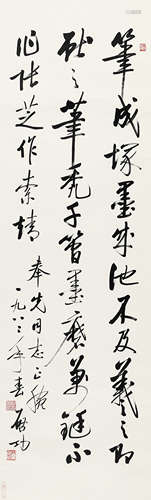 筆成塚墨成池不及羲之即
獻之筆禿千管墨磨萬鋌不
作張芝作索靖
奉先同志正腕
一九八三年春 启功